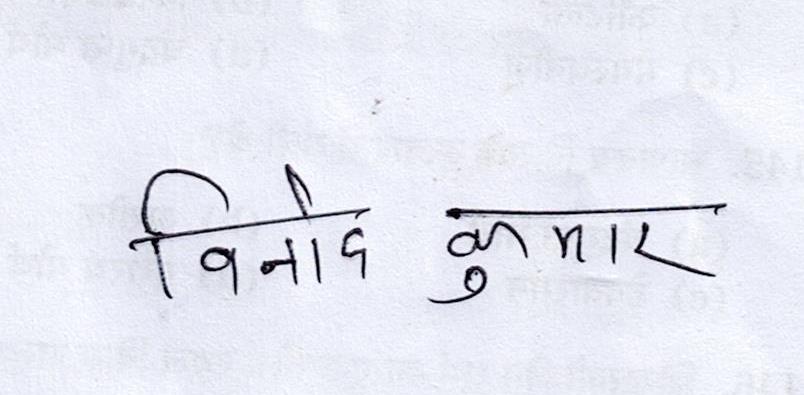 विनोद कुमार